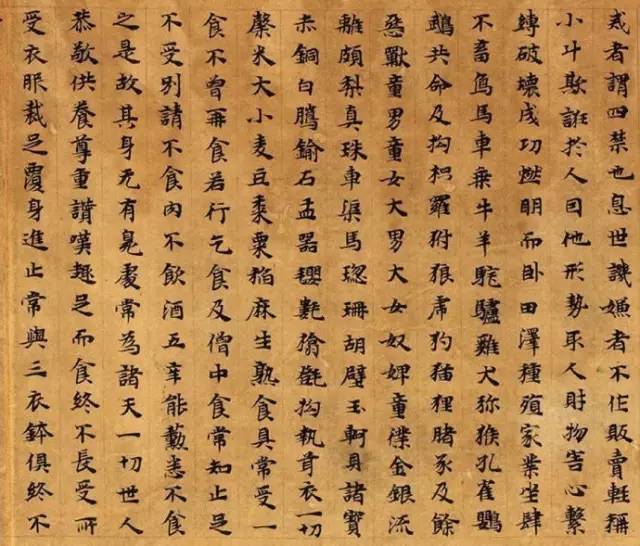 戒者謂四禁也息世譏嫌者不作販賣輕稱
小斗欺誑於人因他形勢取人財物害心繫
縛破壞成功燃明而卧田澤種殖家業坐肆
不畜馬車乘牛羊駝驢雞犬猕猴孔雀鸚
鵡共命及拘枳羅豺狼虎豹猫狸猪豕及餘
惡獸童男童女大男大女奴婢童僕金銀流
離頗梨真珠車渠馬瑙珊胡璧玉軻貝諸寶
赤銅白鑞鍮石盂器拘執耆衣一切
米大小麦豆黍粟稻麻生熟食具常受一
食不曾再食若行乞食及僧中食常知止足
不受別請不食肉不飲酒五辛能勳悉不食
之是故其身无有臭處常為諸天一切世人
恭敬供養尊重讚嘆趣足而食終不長受所
受衣服裁足覆身進止常與三衣鉢俱終不